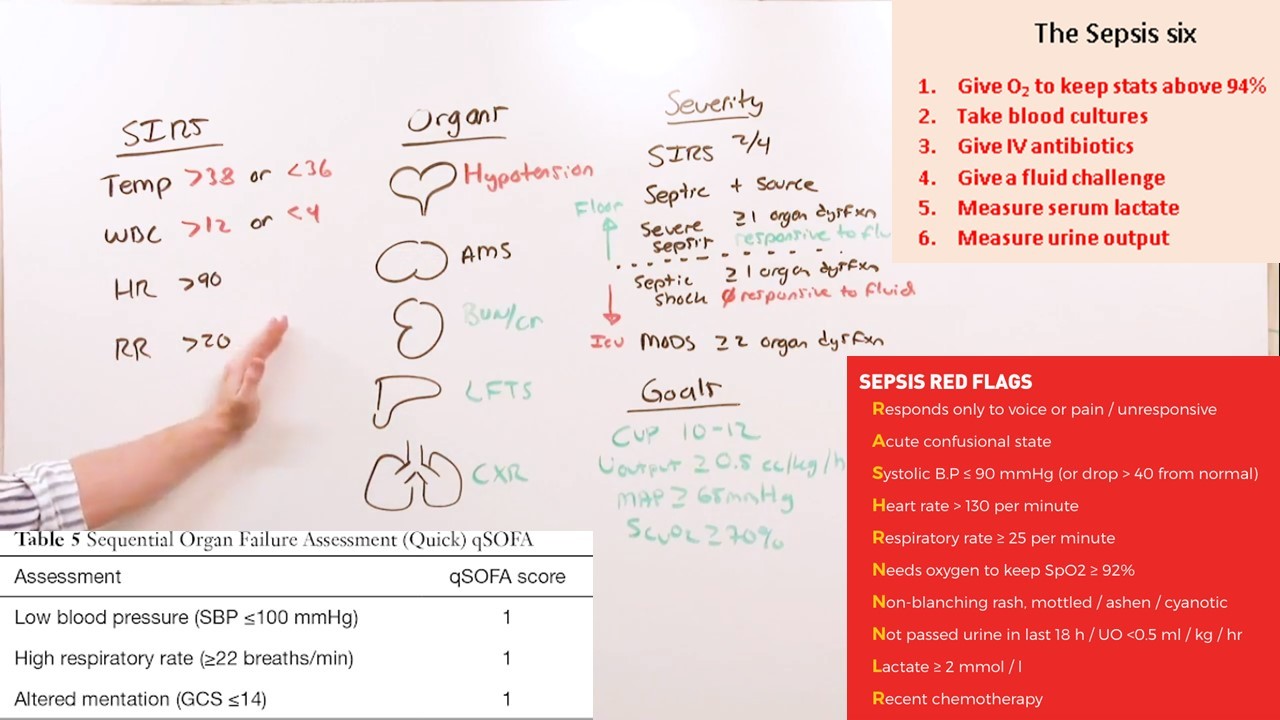 SIRS
Temp >38 or <36
WBC >12 or <4
HR >90
RR >20
Organs
Hypotension
AMS
BUN/Cr
LFTS
CXR
Severity
SIRS 2/4
Septic + Source
Floor
Severe sepsis ≥1 organ dysfxn
responsive to flu
Septic shock ≥1 organ dysfxn
Ø responsive to fluid
Icu
MODS ≥2 organ dysfxn
Goals
CVP 10-12
Uoutput ≥0.5 cc/kg/h
MAP ≥ 65mmHg
ScvO2 ≥70%
The Sepsis six
1. Give O₂ to keep stats above 94%
2. Take blood cultures
3. Give IV antibiotics
4. Give a fluid challenge
5. Measure serum lactate
6. Measure urine output
Table 5 Sequential Organ Failure Assessment (Quick) qSOFA
Assessment qSOFA score
Low blood pressure (SBP ≤100 mmHg) 1
High respiratory rate (≥22 breaths/min) 1
Altered mentation (GCS ≤14) 1
SEPSIS RED FLAGS
Responds only to voice or pain / unresponsive
Acute confusional state
Systolic B.P ≤ 90 mmHg (or drop > 40 from normal)
Heart rate > 130 per minute
Respiratory rate ≥ 25 per minute
Needs oxygen to keep SpO2 ≥ 92%
Non-blanching rash, mottled / ashen / cyanotic
Not passed urine in last 18 h / UO <0.5 ml / kg / hr
Lactate ≥ 2 mmol / l
Recent chemotherapy